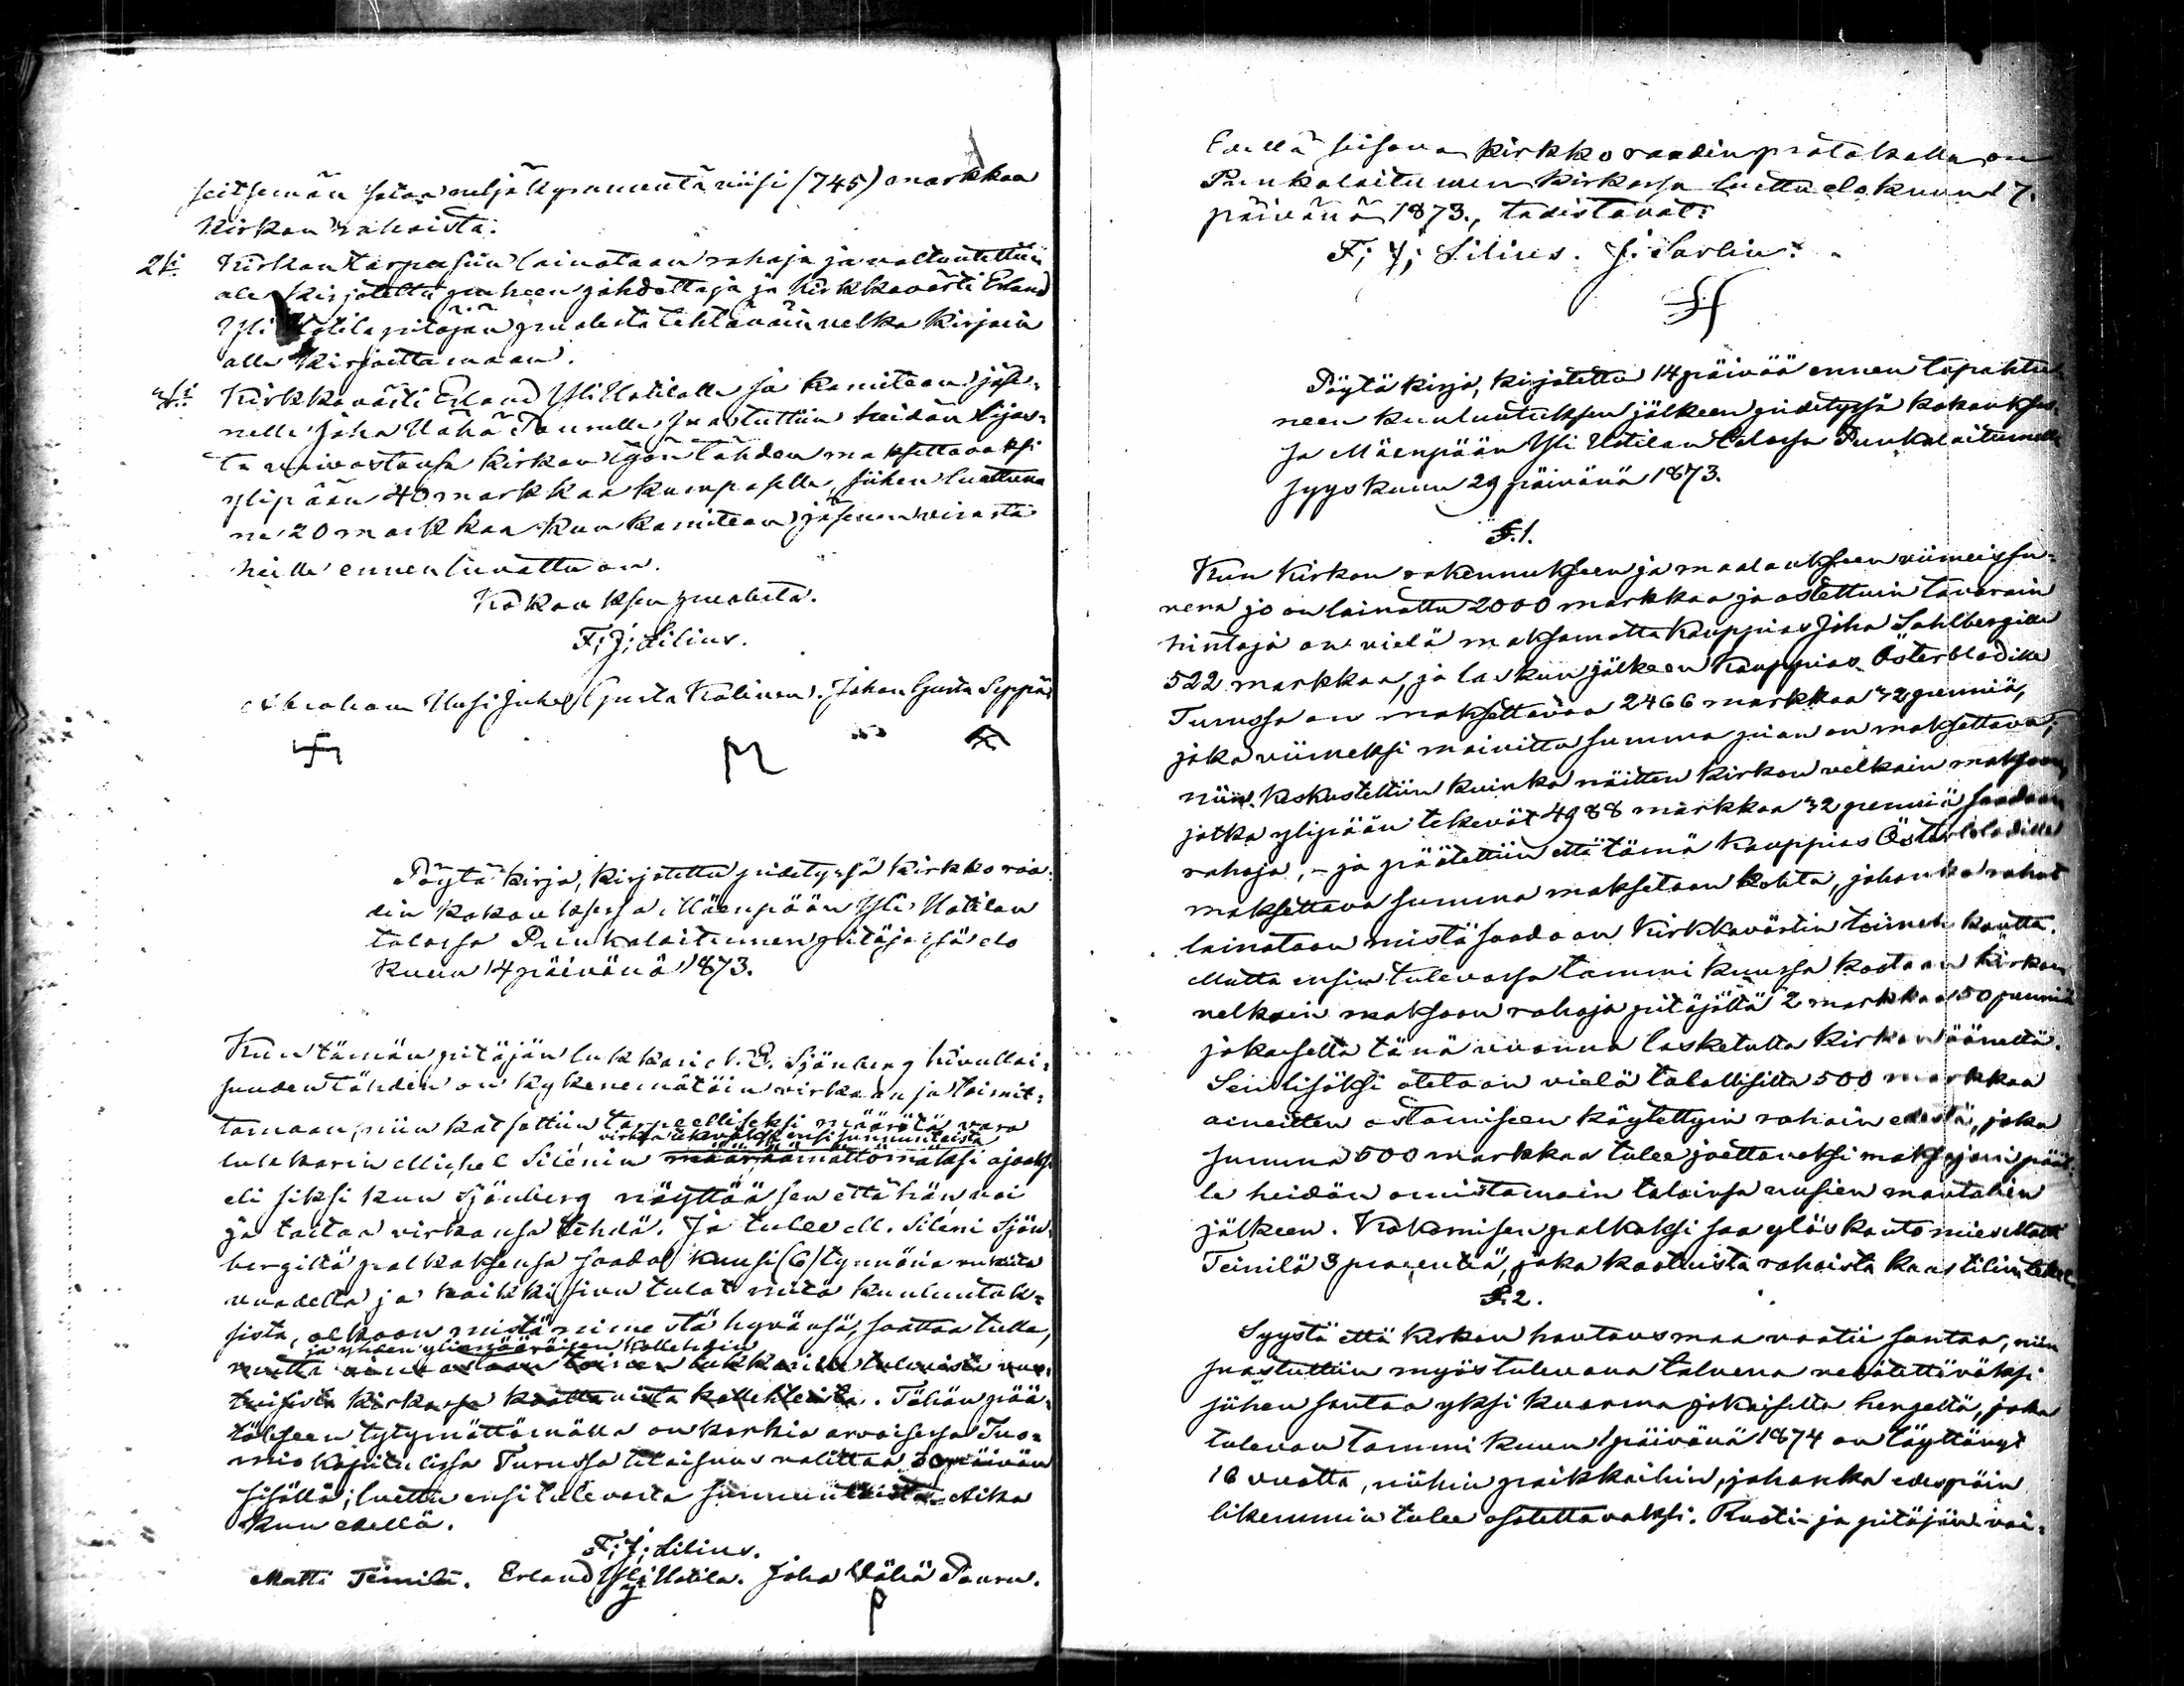 seitsemän sataa neljäkymmentä viisi (745) markkaa
Kirkon rahoista.
2ksi Kirkon tarpeisiin lainataan rahoja ja valtuutettiin
ale kirjotettu puheen johdattaja ja Kirkkovärti Erland
Yli Uotila pitäjän puolesta tehtäviin velka kirjoin
alle kirjoittamaan.
3ksi Kirkkovärti Erland Yli Uotilalle ja komitean jäse-
nelle Joha Vähä Paurulle suostuttiin heidän lijas-
ta vaivastansa Kirkon työn tähden maksettavaksi
ylipään 40 markkaa kumpaselle, siihen luettuna
ne 20 markkaa kun komitean jäsenen virasta
heille ennen luvattu on.
Kokouksen puolesta.
F; J; Lilius.
Abraham Uusi Jukel Gusta Kolinen. Johan Gusta Seppä
Pöytä kirja, kirjotettu pidetyssä Kirkko raa-
din kokouksessa Mäenpään Yli Uotilan
talossa Punkalaitumen pitäjässä elo
Kuun 14 päivänä 1873.
Kun tämän pitäjän lukkari N. E. Sjönberg kivulloi-
suuden tähden on kykenemätöin virkaan ja toimit-
tamaan, niin katsottiin tarpeelliseksi määrätä vara
virkaa tekeväksi ensi sunnuntaista
lukkarin Michel Silénin määräämättömäksi ajaksi
eli siksi kun Sjönberg näyttää sen että hän voi
ja taitaa virkansa tehdä. Ja tulee M. Siléni Sjön-
bergiltä palkaksensa saada kuusi (6) tynnöriä rukiita
vuodelta ja kaikki sivu tulot mitä kuulutuk-
sista, olkoon mistä nimestä hyvänsä, saattaa tulla,
ja yhden ylimääräisen kollehdin
mutta ainoastaan toinen lukkarille tulevista vuo-
tuisista kirkossa koottavista kollehteista. Tähän pää-
tökseen tytymättömällä on korkia arvoisessa Tuo-
mio kapitulissa Turussa tilaisuus valittaa 30 päivän
sisällä; luettu ensi tulevasta sunnuntaista. Aika
kun edellä.
F; J; Lilius.
Matti Teinilä. Erland Yli Uotila. Joha Vähä Pauru.
Edellä seisova Kirkko raadin protokolla on
Punkalaitumen Kirkossa luettu elokuun 17.
päivänä 1873., todistavat:
F; J; Lilius. J. Sarlin.
Pöytä kirja, kirjotettu 14 päivää ennen tapahtu-
neen kuulutuksen jälkeen pidetyssä kokoukses-
sa Mäenpään Yli Uotilan talossa Punkalaitumella
syyskuun 29 päivänä 1873.
§.1.
Kun Kirkon rakennukseen ja maalaukseen viimeissu-
vena jo on lainattu 2000 markkaa ja ostettuin tavarain
hintoja on vielä maksamatta Kauppias Joha Sahlbergille
522 markkaa, ja laskun jälkeen Kauppias Österbladille
Turussa on maksettavaa 2466 markkaa 32 penniä,
joka viimeksi mainittu summa pian on maksettava;
niin keskusteltiin kuinka näitten kirkon velkain maksoon,
jotka ylipään tekevät 4988 markkaa 32 penniä saadaan
rahoja, – ja päätettiin että tämä Kauppias Österbladille
maksettava summa maksetaan kohta, johonka rahat
lainataan mistä saadaan Kirkkovärtin toimen kautta.
Mutta ensin tulevassa tammi kuussa kootaan kirkon
velkain maksoon rahoja pitäjältä 2 markkaa 50 penniä
jokaiselta tänä vuonna lasketulta Kirkon ääneltä.
Sen lisäksi otetaan vielä talollisilta 500 markkaa
aineitten ostamiseen käytettyin rahain edestä, joka
summa 500 markkaa tulee joettavaksi maksajain pääl-
le heidän omistamain taloinsa uusien manttalien
jälkeen. Kokomisen palkaksi saa ylöskantomies Matti
Teinilä 3 prosenttiä, joka kootuista rahoista kaas tilin tekee.
§.2.
Syystä että Kirkon hautausmaa vaatii santaa, niin
suostuttiin myös tulevana talvena vedätettäväksi
siihen santaa yksi kuorma jokaiselta hengeltä, joka
tulevan Tammi kuun 1 päivänä 1874 on täyttänyt
16 vuotta, niihin paikkoihin, johonka edespäin
likemmin tulee osotettavaksi. Ruoti- ja pitäjän vai-